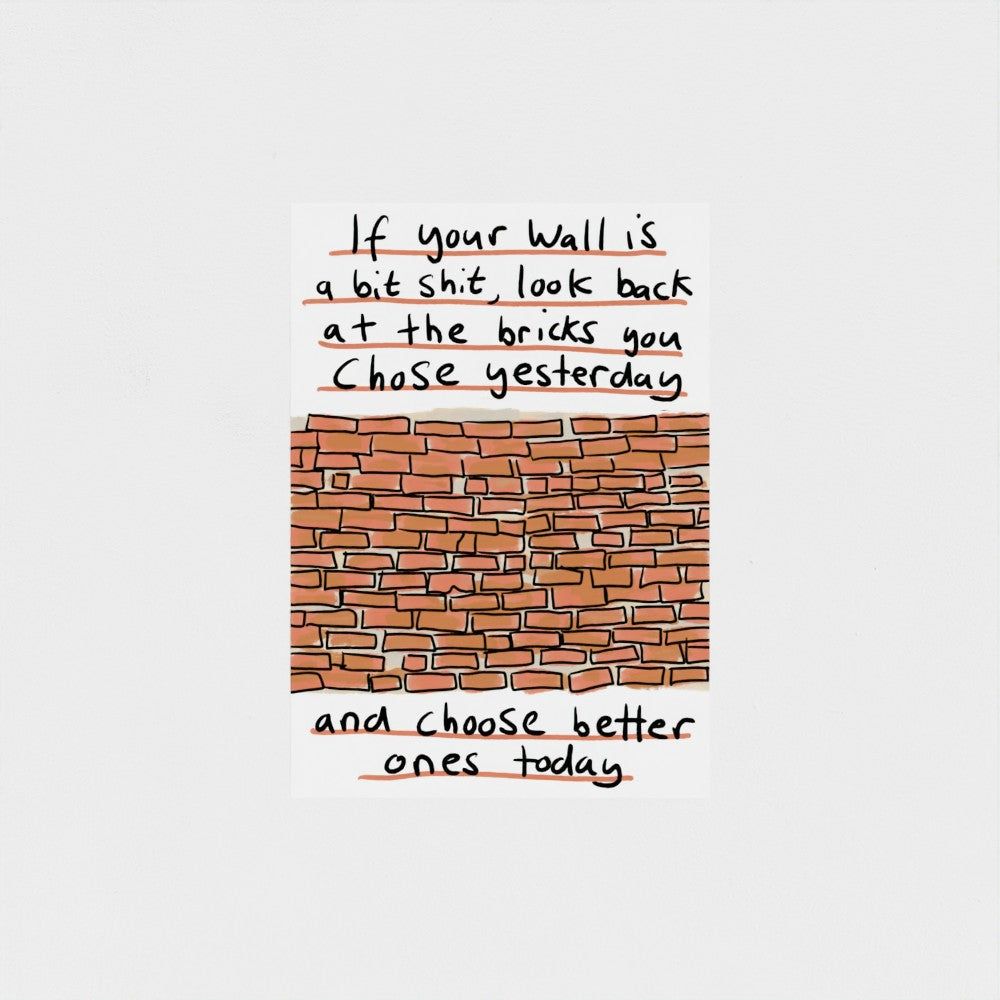 If your Wall is
a bit shit, look back
at the bricks you
Chose yesterday
and choose better
ones today